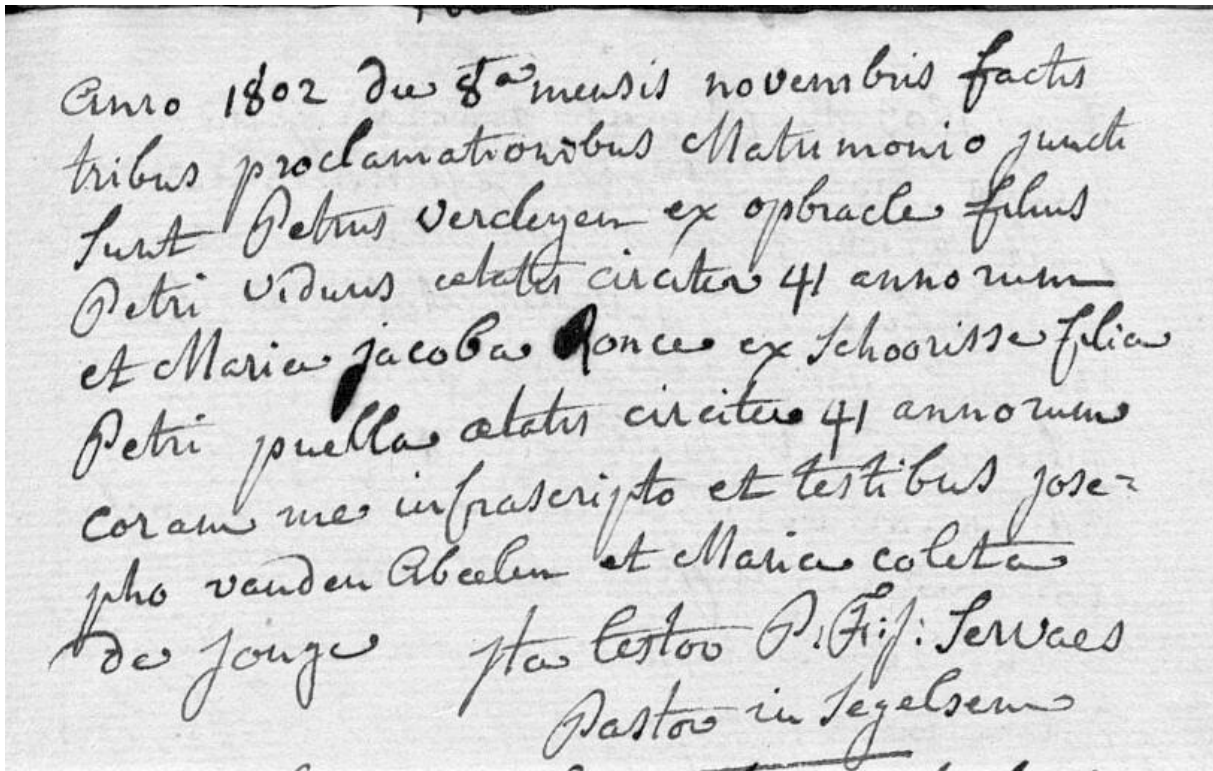 Anno 1802 die 8a mensis novembris factis
tribus proclamationibus Matrimonio juncti
Sunt Petrus vercleyen ex opbracle filius
Petri viduus ætatis circiter 41 annorum
et Maria jacoba Ronce ex Schoorisse filia
Petri puella ætatis circiter 41 annorum
coram me infrascripto et testibus jose=
pho vanden Abeelen et Maria coleta
de jonge jta testor P: F: j: Servaes
Pastor in Segelsem